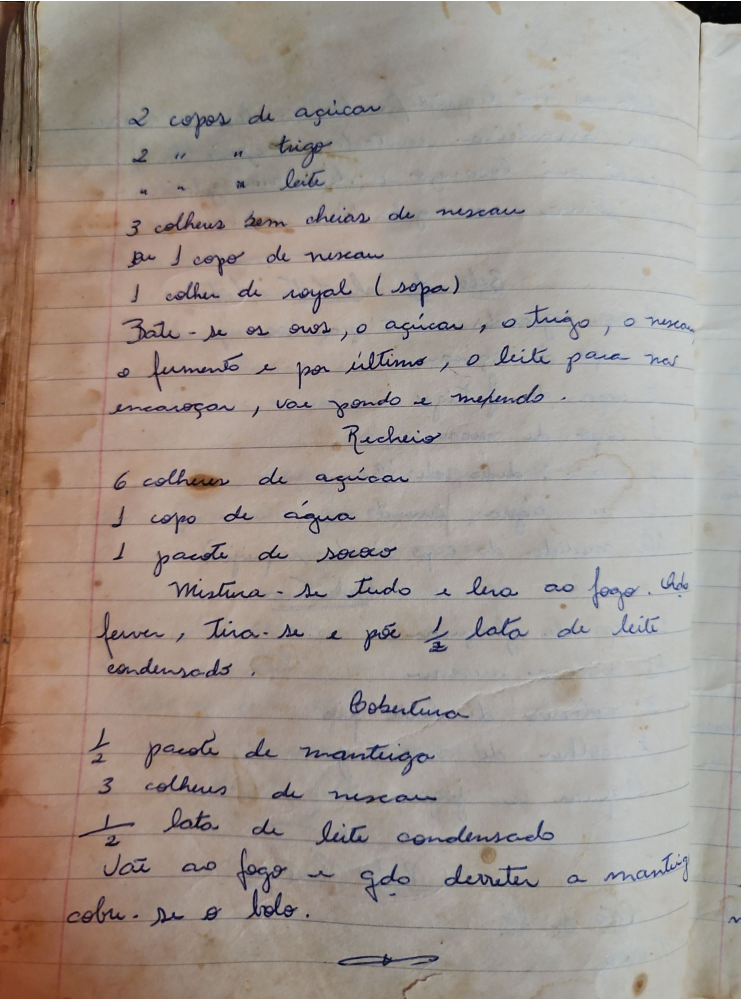 2 copos de açúcar
2 " " trigo
" " " leite
3 colheres bem cheias de nescau
ou 1 copo de nescau
1 colher de royal (sopa)
Bate-se os ovos, o açúcar, o trigo, o nescau
o fermento e por último, o leite para não
encaroçar, vai pondo e mexendo.
Recheio
6 colheres de açúcar
1 copo de água
1 pacote de sococo
Mistura-se tudo e leva ao fogo. Qdo
ferver, tira-se e põe 1/2 lata de leite
condensado.
Cobertura
1/2 pacote de manteiga
3 colheres de nescau
1/2 lata de leite condensado
Vai ao fogo e qdo derreter a manteig
cobre-se o bolo.